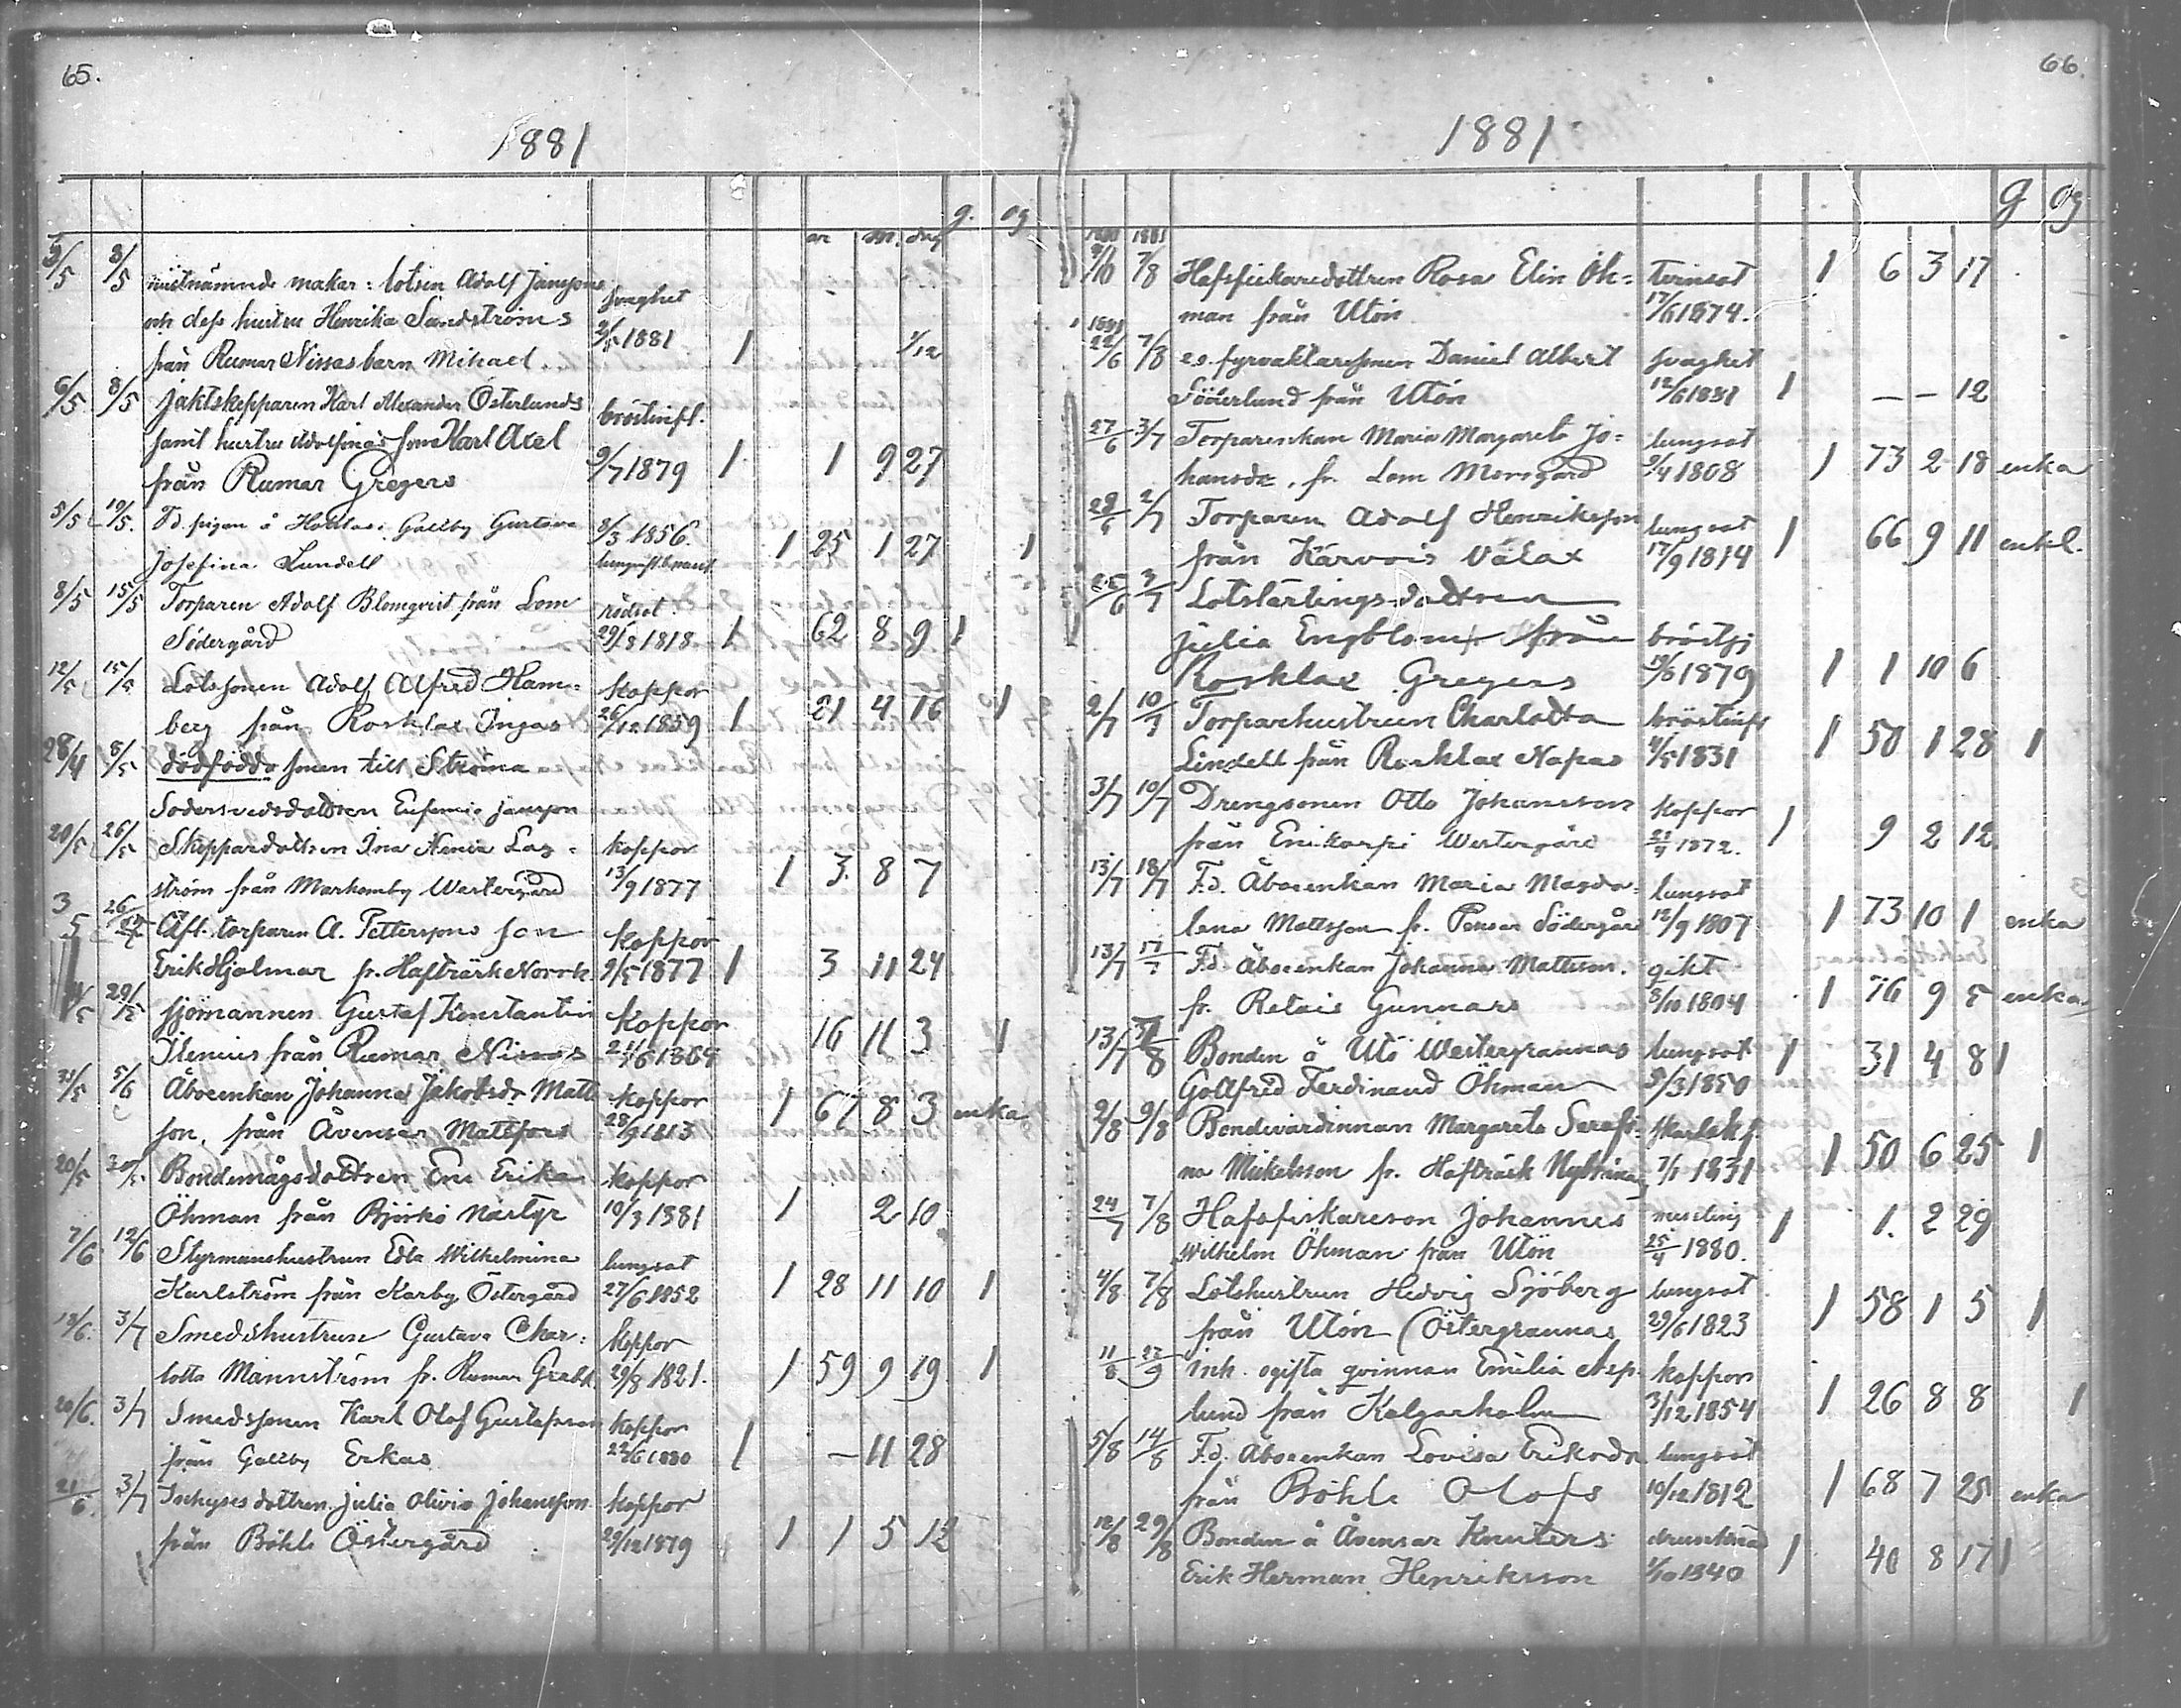 65.
1881
g. og
år m. dag
5/5 8/5 makar: lotsen Adolf Janssons svaghet
och dess hustru Henrika Sundströms 2/5 1881
från Rumar Nissas barn Mikael 1 1/12
6/5 8/5 jaktskepparen Karl Alexander Österlunds bröstinfl.
samt hustru Adolfinas son Karl Axel
från Rumar Gregers 9/7 1879 1 1 9 27
5/5 10/5. Fd. pigan å Gallby Gustava 8/3 1856.
Josefina Lundell 1 25 1 27 1
8/5 15/5 Torparen Adolf Blomqvist från Lom rödsot
Södergård 29/8 1818 1 62 8 9 1
12/5 15/5 Lotssonen Adolf Alfred Ham= koppor
berg från Rosklax Ingas 26/12 1859 1 21 4 16 1
28/4 8/5 dödfödda sonen till Ströma
Södersvedsdottren Eufemia Jansson
20/5 26/5 Skeppardottren Ina Lag= koppor
ström från Markomby Westergård 13/9 1877 1 3 8 7
3/5 26/5 Afl. torparen A. Petterssons son koppor
Erik Hjalmar fr. Hafträsk Norrk. 9/5 1877 1 3 11 24
29/5 sjömannen Gustaf Konstantin koppor
Ilenius från Rumar Nissas 21/6 1864 16 11 3 1
31/5 5/6 Åboenkan Johanna Jakobsdr Matts koppor
son, från Åvensar Mattfors 28/9 1813 1 67 8 3 enka
20/5 30/5 Bondemågsdottren Erika koppor
Öhman från Björkö Närtyr 10/3 1881 1 2 10
7/6 12/6 Styrmanshustrun Edla Wilhelmina lungsot
Karlström från Karby Östergård 27/6 1852 1 28 11 10 1
18/6. 3/7 Smedshustrun Gustava Char= koppor
lotta Mannström fr. Rumar 29/8 1821. 1 59 9 19 1
20/6. 3/7 Smedssonen Karl Olof Gustafsson koppor
från Gallby Erkas 22/6 1880 1 — 11 28
21/6. 3/7 Inhysesdottren Julia Olivia Johansson koppor
från Böhle Östergård 29/12 1879 1 1 5 12
66.
1881
g og
1880 1881
4/10 7/8 Hafsfiskaredottren Rosa Elin Öh= tvinsot 1 6 3 17
man från Utön 17/6 1874.
1881
22/6 7/8 e.o. fyrvaktaresonen Daniel Albert svaghet
Söderlund från Utön 12/6 1881 1 — — 12
27/6 3/7 Torparenkan Maria Margareta Jo= lungsot
hansdr, fr. Lom Morsgård 9/4 1808 1 73 2 18 enka
28/6 2/7 Torparen Adolf Henriksson lungsot
från Kärvois Välax 17/9 1814 1 66 9 11 enkl.
25/6 3/7 Lotslärlingsdottren
Julia Engblom från bröstsj
Rosklax Gregers 19/8 1879 1 1 10 6
2/7 10/7 Torparhustrun Charlotta bröstinfl
Lindell från Rosklax Napas 4/5 1831 1 50 1 28 1
3/7 10/7 Drengsonen Otto Johansson koppor
från Enikarpi Westergård 21/4 1872. 1 9 2 12
13/7 18/7 F.d. Åboenkan Maria Magda= lungsot
lena Mattsson fr. Pensar Södergård 12/9 1807 1 73 10 1 enka
13/7 17/7 F.d. Åboenkan Johanna Mattsson. gikt
fr. Retais Gunnars 8/10 1804 1 76 9 5 enka
13/7 Bonden å Utö Westergrannas lungsot 1 31 4 8 1
Gottfrid Ferdinand Öhman 5/3 1850
2/8 9/8 Bondevärdinnan Margareta Serafi= skarlakf
na Mikelsson fr. Hafträsk 7/1 1831 1 50 6 25 1
24/7 7/8 Hafsfiskareson Johannes messling 1 1. 2 29
Wilhelm Öhman från Utön 25/4 1880.
4/8 7/8 Lotshustrun Hedvig Sjöberg lungsot
från Utön Östergrannas 29/6 1823 1 58 1 5 1
11/8 22/9 inh. ogifta qvinnan Emilia Asp= koppor
lund från Kalgarholm 3/12 1854 1 26 8 8 1
5/8 14/8 F.d. Åboenkan Lovisa Eriksdr lungsot
från Böhle Olofs 10/12 1812 1 68 7 25 enka
12/8 29/8 Bonden å Åvensar Knuters drunknad
Erik Herman Henriksson 1/10 1840 1 40 8 17 1